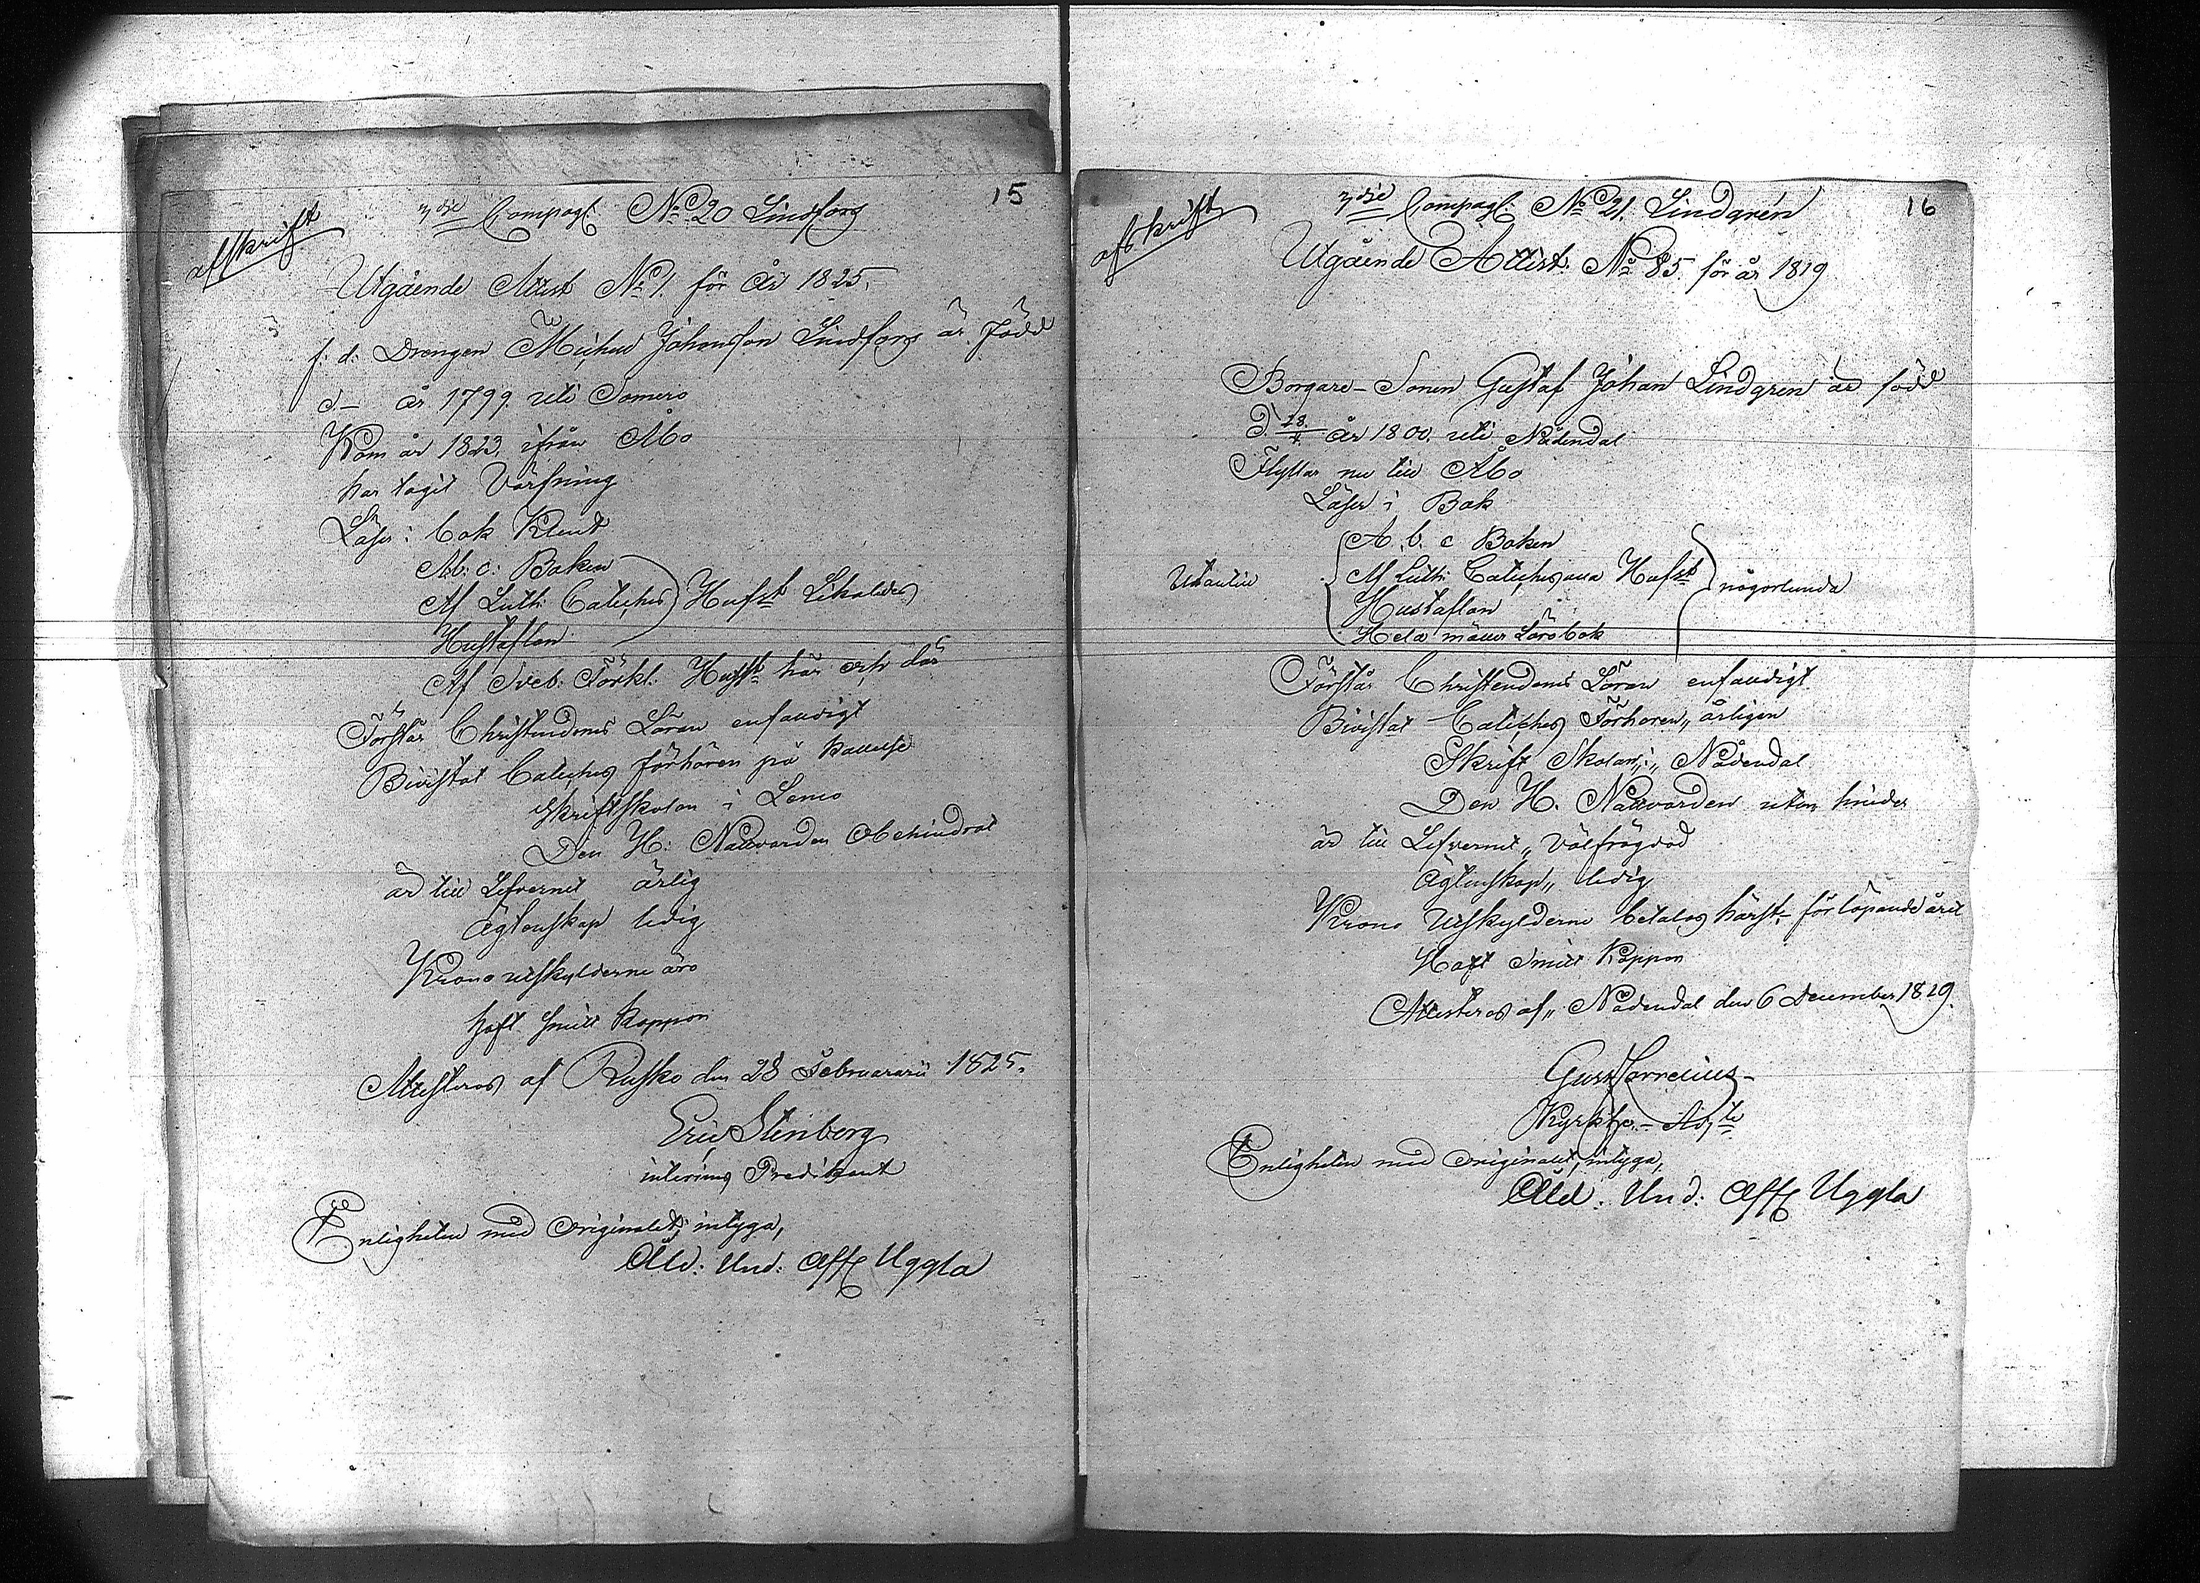 15
afskrift
3dje Compagt: No 20 Lindfors
Utgående Attest No 1. för År 1825.
f: d: Drengen Michel Johansson Lindfors är Född
d— år 1799. uti Somero
Kom år 1823. ifrån Åbo
har tagit Värfning
Läser i bok Klent
A.b.c: Boken
Af Luth: Cateches Hufst Likaledes
Hustaflan
Af Sveb: Förkl: Hufst här och där
Förstår Christendoms Läran enfaudigt
Bivistat Cateches förhören på
Skriftskolan i Lemo
Den H: Nattvarden Obehindrat
är till Lefvernet ärlig
Ägtenskap ledig
Krono utskylderne äro
haft Smitt Koppon
Attesteras af Rusko den 28 Februarii 1825.
Eric Stenberg
interims Predikant
Enligheten med Originalet; intyga,
Åld: Und: Off Uggla
16
afskrift
3dje Compagt: No 21. Lindgrén
Utgående Attest: No 85. för år 1819
Borgare-Sonen Gustaf Johan Lindgren är född
d. 28/4. år 1800. uti Nådendal
Flyttar nu till Åbo
Läser i Bok
A. b. c Boken
Utantill Af Luth: Catechesana Hufst någorlunda
Hustaflan
Hela Lärobok
Förstår Christendoms Läran enfaudigt.
Bivistat Cateches Förhoren,, årligen
Skrift Skolan,, i,, Nådendal
Den H. Nattvarden utan hinder
är till Lefvernet,, välfrägdad
Ägtenskap,, ledig
Krono Utskylderne betalas härst: för löpande året
Haft Smitt Koppon
Attesteras af,, Nådendal den 6 December 1819.
Gust
Kyrkhe.— Adj:te
Enligheten med Originalet, intyga,
Åld: Und: Off Uggla